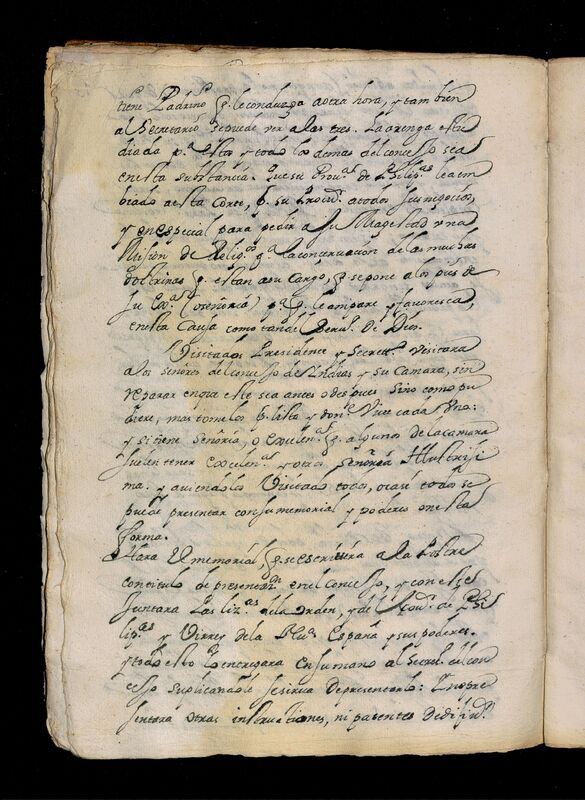 tiene Padrino q.e le conduzga aotra hora, y tambien
al Secretario sepuede ver alas tres. La arenga estu
diada p.a estos y todos los demas del concejo sea
enesta substancia. Que su Prou.a de Philip.as le a em
biado aesta Corte, p. su Procu.r atodos sus negocios,
y en especial para pedir a Su Magestad vna
Mision de Relig.os p.a la conseruacion delas muchas
doctrinas q. estan asu cargo, q. se pone alos pies de
su Ex.a (o señoria) p.a q. le ampare y favoresca,
enesta Causa como tan del Serui.o De Dios.
Visitados Presidente y Secret.o visitara
alos señores del concejo de Indias y su Camara, sin
reparar en que este sea antes o despues sino como pu
diere, mas tome los p. lista y don.e Viue cada Vno:
y si tiene Señoria, o excelen.a q. algunos dela camara
suelen tener excelen.a y otros Señoria Illustrisi
ma. y auiendolos Visitado todos, o casi todos se
puede presentar con su memorial y poderes enesta
forma.
Hara Vl memorial, q. se escriuira a la Postre
con titulo de presentar.se en el Concejo, y con el se
Juntara Las liz.as dela Orden, y del Gou.r de Phi
lip.as y Virrey dela Nu.a España y sus poderes.
y todo esto lo entregara en su mano al Secret.o del con
cejo suplicandole se sirua de presentarlo: Y no pre
sentara otras instructiones, ni patentes Dedifin.r